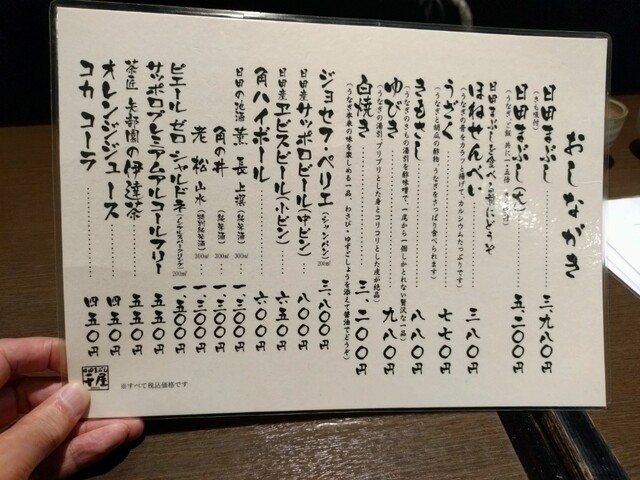 おしながき
日田まぶし………三、九八〇円
(きも吸付)
日田まぶし(大)……五、二〇〇円
(うなぎ、ご飯 共に一・五倍
日田まぶしを食べる前にどうぞ
ほねせんべい………三八〇円
(うなぎの骨をカラッと揚げて、カルシウムたっぷりです)
うざく………七七〇円
(うなぎと胡瓜の酢物、うなぎをさっぱり食べられます)
きもさし………八八〇円
(うなぎのきもの湯引を酢味噌で、一尾から一個しかとれない贅沢な一品)
ゆびき………九八〇円
(うなぎの湯引、プリプリとした身とコリコリとした皮が絶品)
白焼き………三、二〇〇円
(うなぎ本来の味を楽しめる一品、わさび・ゆずごしょうを添えて醤油でどうぞ)
ジョセフ・ペリエ(シャンパン)200㎖ 三、八〇〇円
日田産サッポロビール(中ビン)……八〇〇円
日田産エビスビール(小ビン)……六五〇円
角ハイボール………六〇〇円
日田の地酒 薫長 上撰 300㎖ …一、三〇〇円
角の井 300㎖ …一、三〇〇円
老松 山水 300㎖ …一、三〇〇円
ピエール ゼロ シャルドネ 200㎖ 一、五〇〇円
サッポロプレミアムアルコールフリー……五五〇円
茶匠 矢部園の伊達茶………五五〇円
オレンジジュース………四五〇円
コカ コーラ………四五〇円
※すべて税込価格です